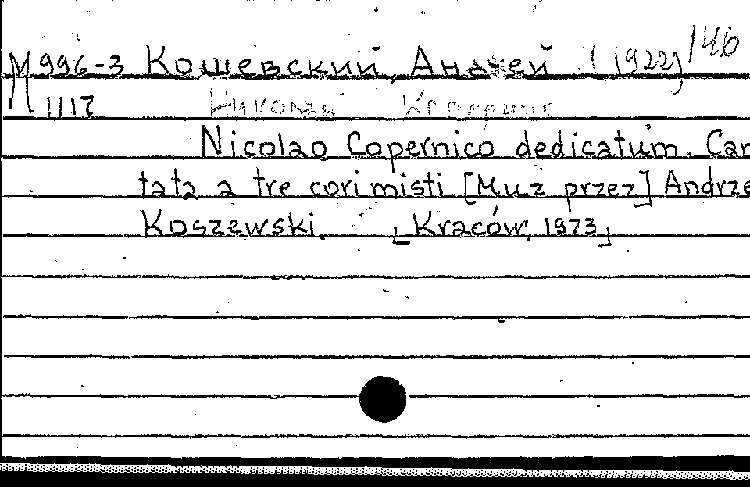 М 996-3 Кошевский, Андзей (1922) 146
1117 Николай Коперник
Nicolao Copernico dedicatum. Can
tata a tre cori misti [Muz przez] Andrze
Koszewski. [Kraców, 1973]